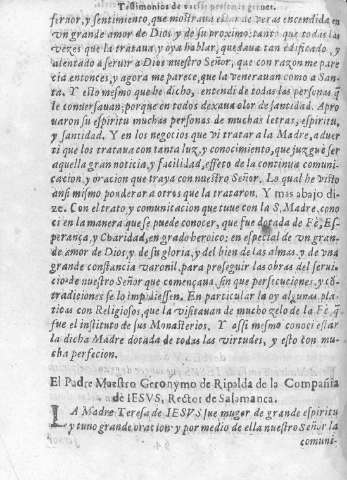 Testimonios de varias personas graues.
feruor, y sentimiento, que mostraua estar de veras encendida en
vn grande amor de Dios y de su proximo: tanto que todas las
vezes que la trataua y oya hablar, quedaua tan edificado, y
alentado a seruir a Dios nuestro Señor, que con razon me pare
cia entonces, y agora me parece, que la venerauan como a San-
ta. Y esto mesmo que he dicho, entendi de todas las personas q̃
le conuersauan: porque en todos dexaua olor de santidad. Apro
uaron su espiritu muchas personas de muchas letras, espiritu,
y santidad. Y en los negocios que vi tratar a la Madre, aduer
ti que los trataua con tanta luz, y conocimiento, que juzguè ser
aquella gran noticia, y facilidad, efeto de la continua comuni-
cacion y oracion que traya con nuestro Señor. Lo qual he visto
ansi mismo ponderar a otros que la trataron. Y mas abajo di
ze. Con el trato y comunicacion que tuue con la S. Madre, cono
ci en la manera que se puede conocer, que fue dotada de Fè, Es-
perança, y Charidad, en grado heroico; en especial de vn gran-
de amor de Dios, y de su gloria, y del bien de las almas, y de vna
grande constancia varonil, para proseguir las obras del serui-
cio de nuestro Señor que començaua, sin que persecuciones, y cõ-
tradiciones se lo impidiessen. En particular la oy algunas pla-
ticas con Religiosos, que la visitauan de mucho zelo de la Fè, q̃
fue el instituto de sus Monasterios. Y assi mismo conoci estar
la dicha Madre dotada de todas las virtudes, y esto con mu-
cha perfecion.
El Padre Maestro Geronymo de Ripalda de la Compañia
de IESVS, Rector de Salamanca.
LA Madre Teresa de IESVS fue muger de grande espiritu
y tuuo grande oracion: y por medio de ella nuestro Señor la
comuni-